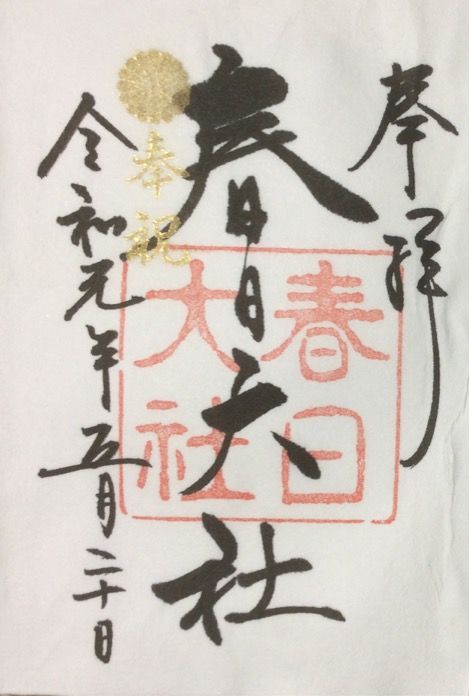 奉拝
春日大社
春日
大社
奉祝
令和元年五月二十日